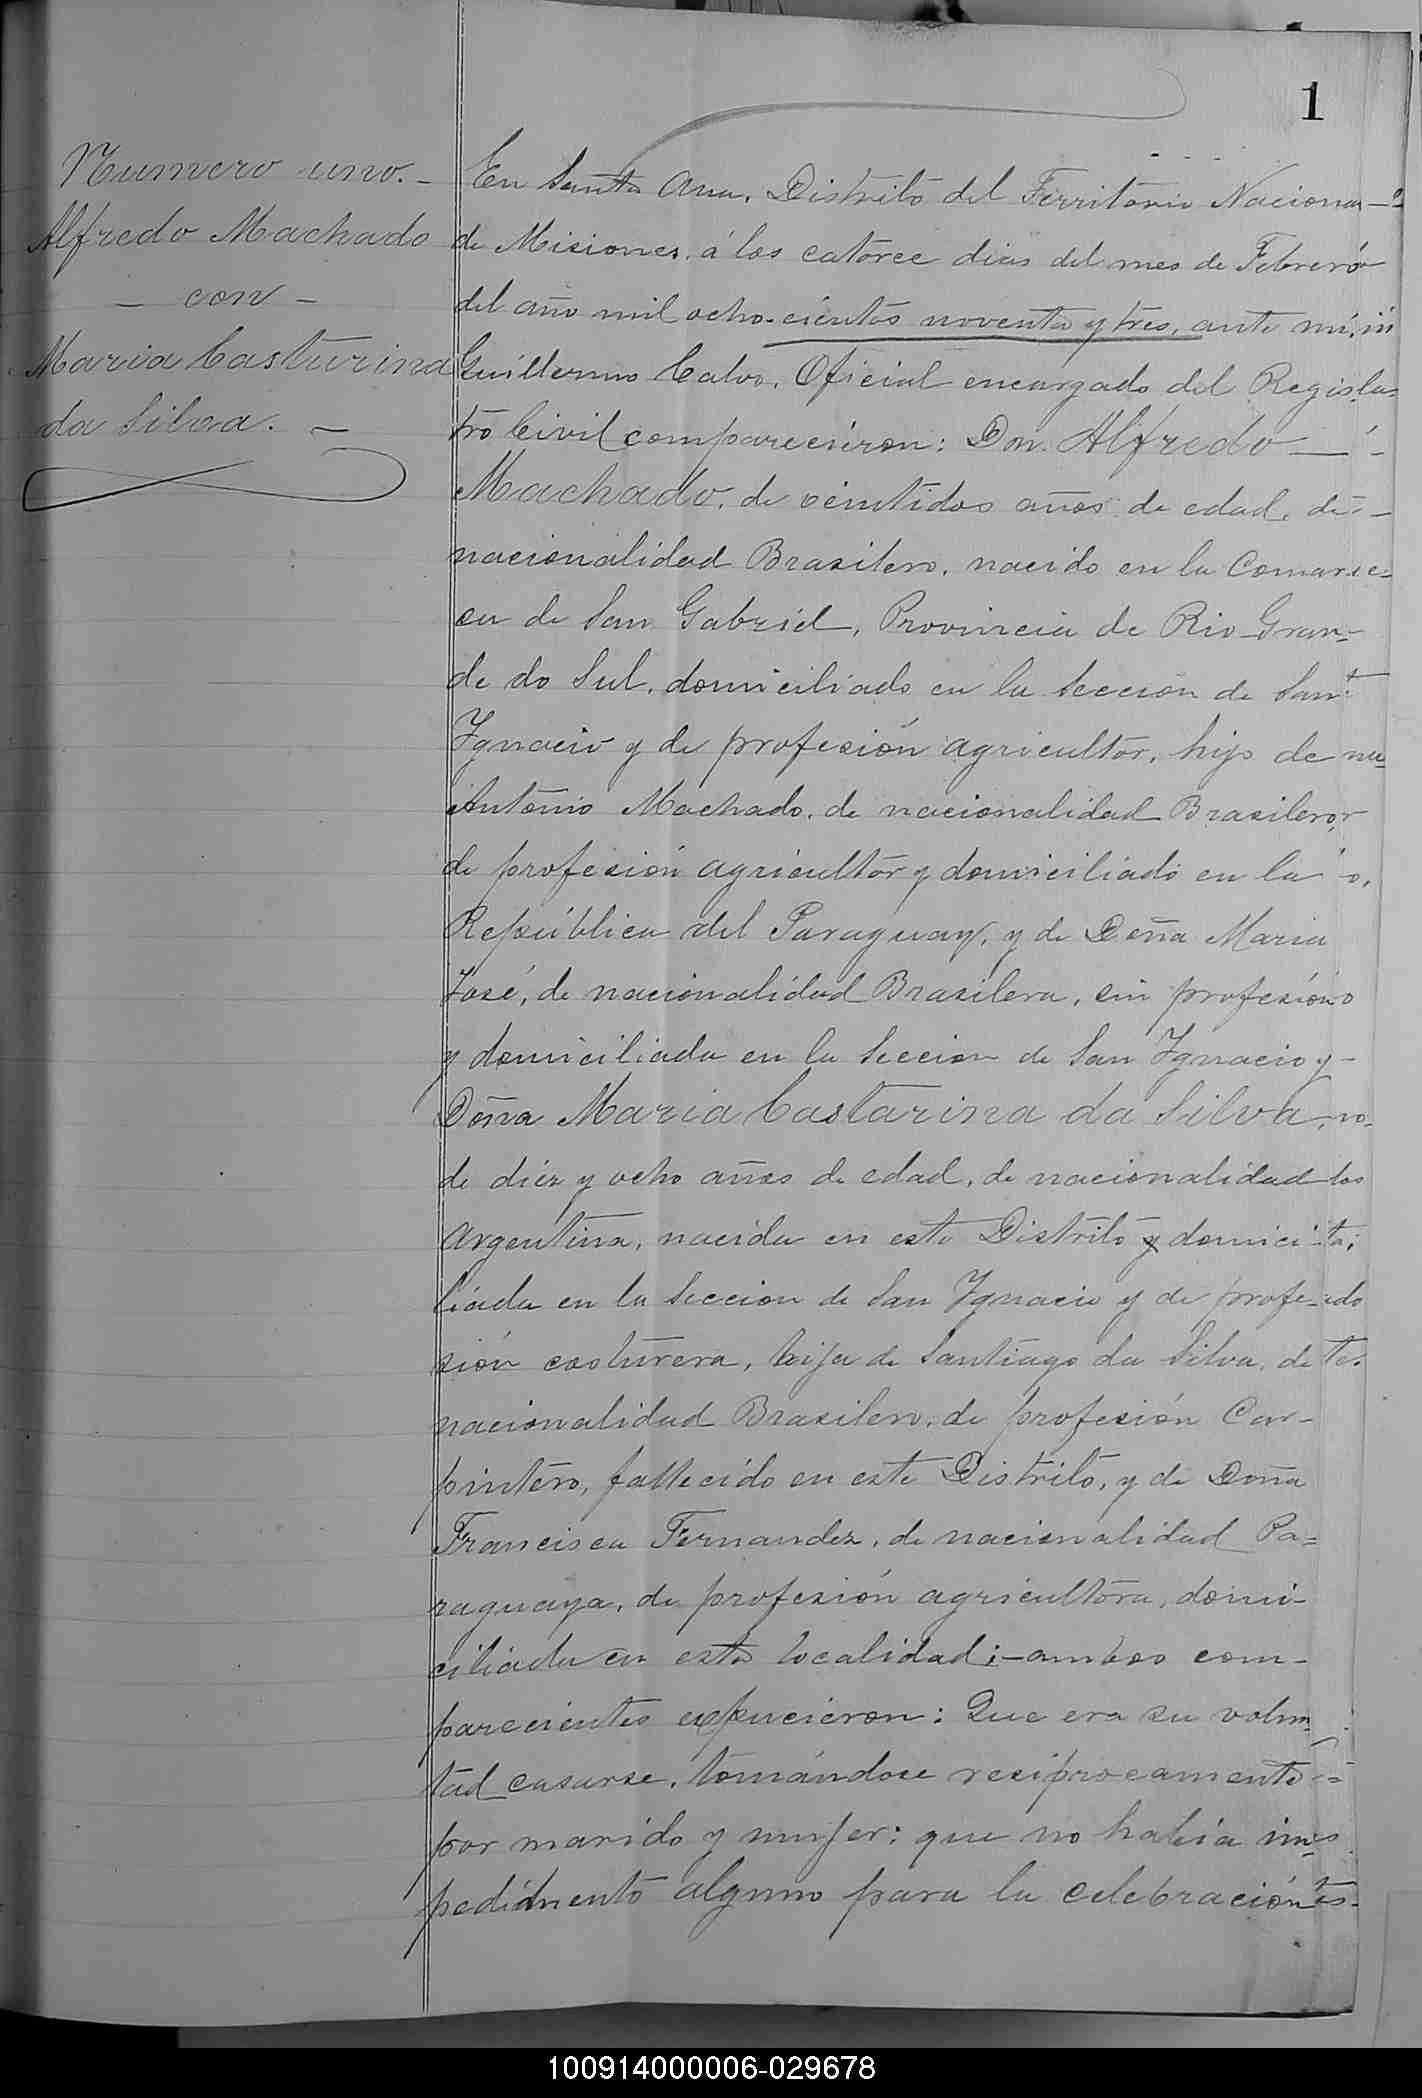 1
Numero uno. -
Alfredo Machado
- con -
Maria Casturina
da Silva. -
En Santa Ana, Distrito del Territorio Nacional
de Misiones, á los catorce dias del mes de Febrero
del año mil ocho-cientos noventa y tres, ante mi,
Guillermo Calvo, Oficial encargado del Regis-
tro Civil comparecieron: Don Alfredo
Machado, de veintidos años de edad, de
nacionalidad Brasilero, nacido en la Comar-
ca de San Gabriel, Provincia de Rio Gran-
de do Sul, domiciliado en la Seccion de San
Ygnacio y de profesión agricultor, hijo de
Antonio Machado, de nacionalidad Brasilero,
de profesión agricultor y domiciliado en la
República del Paraguay, y de Doña Maria
José, de nacionalidad Brasilera, sin profesión
y domiciliada en la Seccion de San Ygnacio y -
Doña Maria Castarina da Silva,
de diez y ocho años de edad, de nacionalidad
Argentina, nacida en este Distrito y domici-
liada en la Seccion de San Ygnacio y de profe-
sión costurera, hija de Santiago da Silva, de
nacionalidad Brasilero, de profesión Car-
pintero, fallecido en este Distrito, y de Doña
Francisca Fernandez, de nacionalidad Pa=
raguaya, de profesión agricultora, domi-
ciliada en esta localidad; - ambos com-
parecientes expucieron: Que era su volun-
tad casarse, tomándose resiprocamente
por marido y mujer: que no habia im-
pedimento alguno para la celebración
100914000006-029678